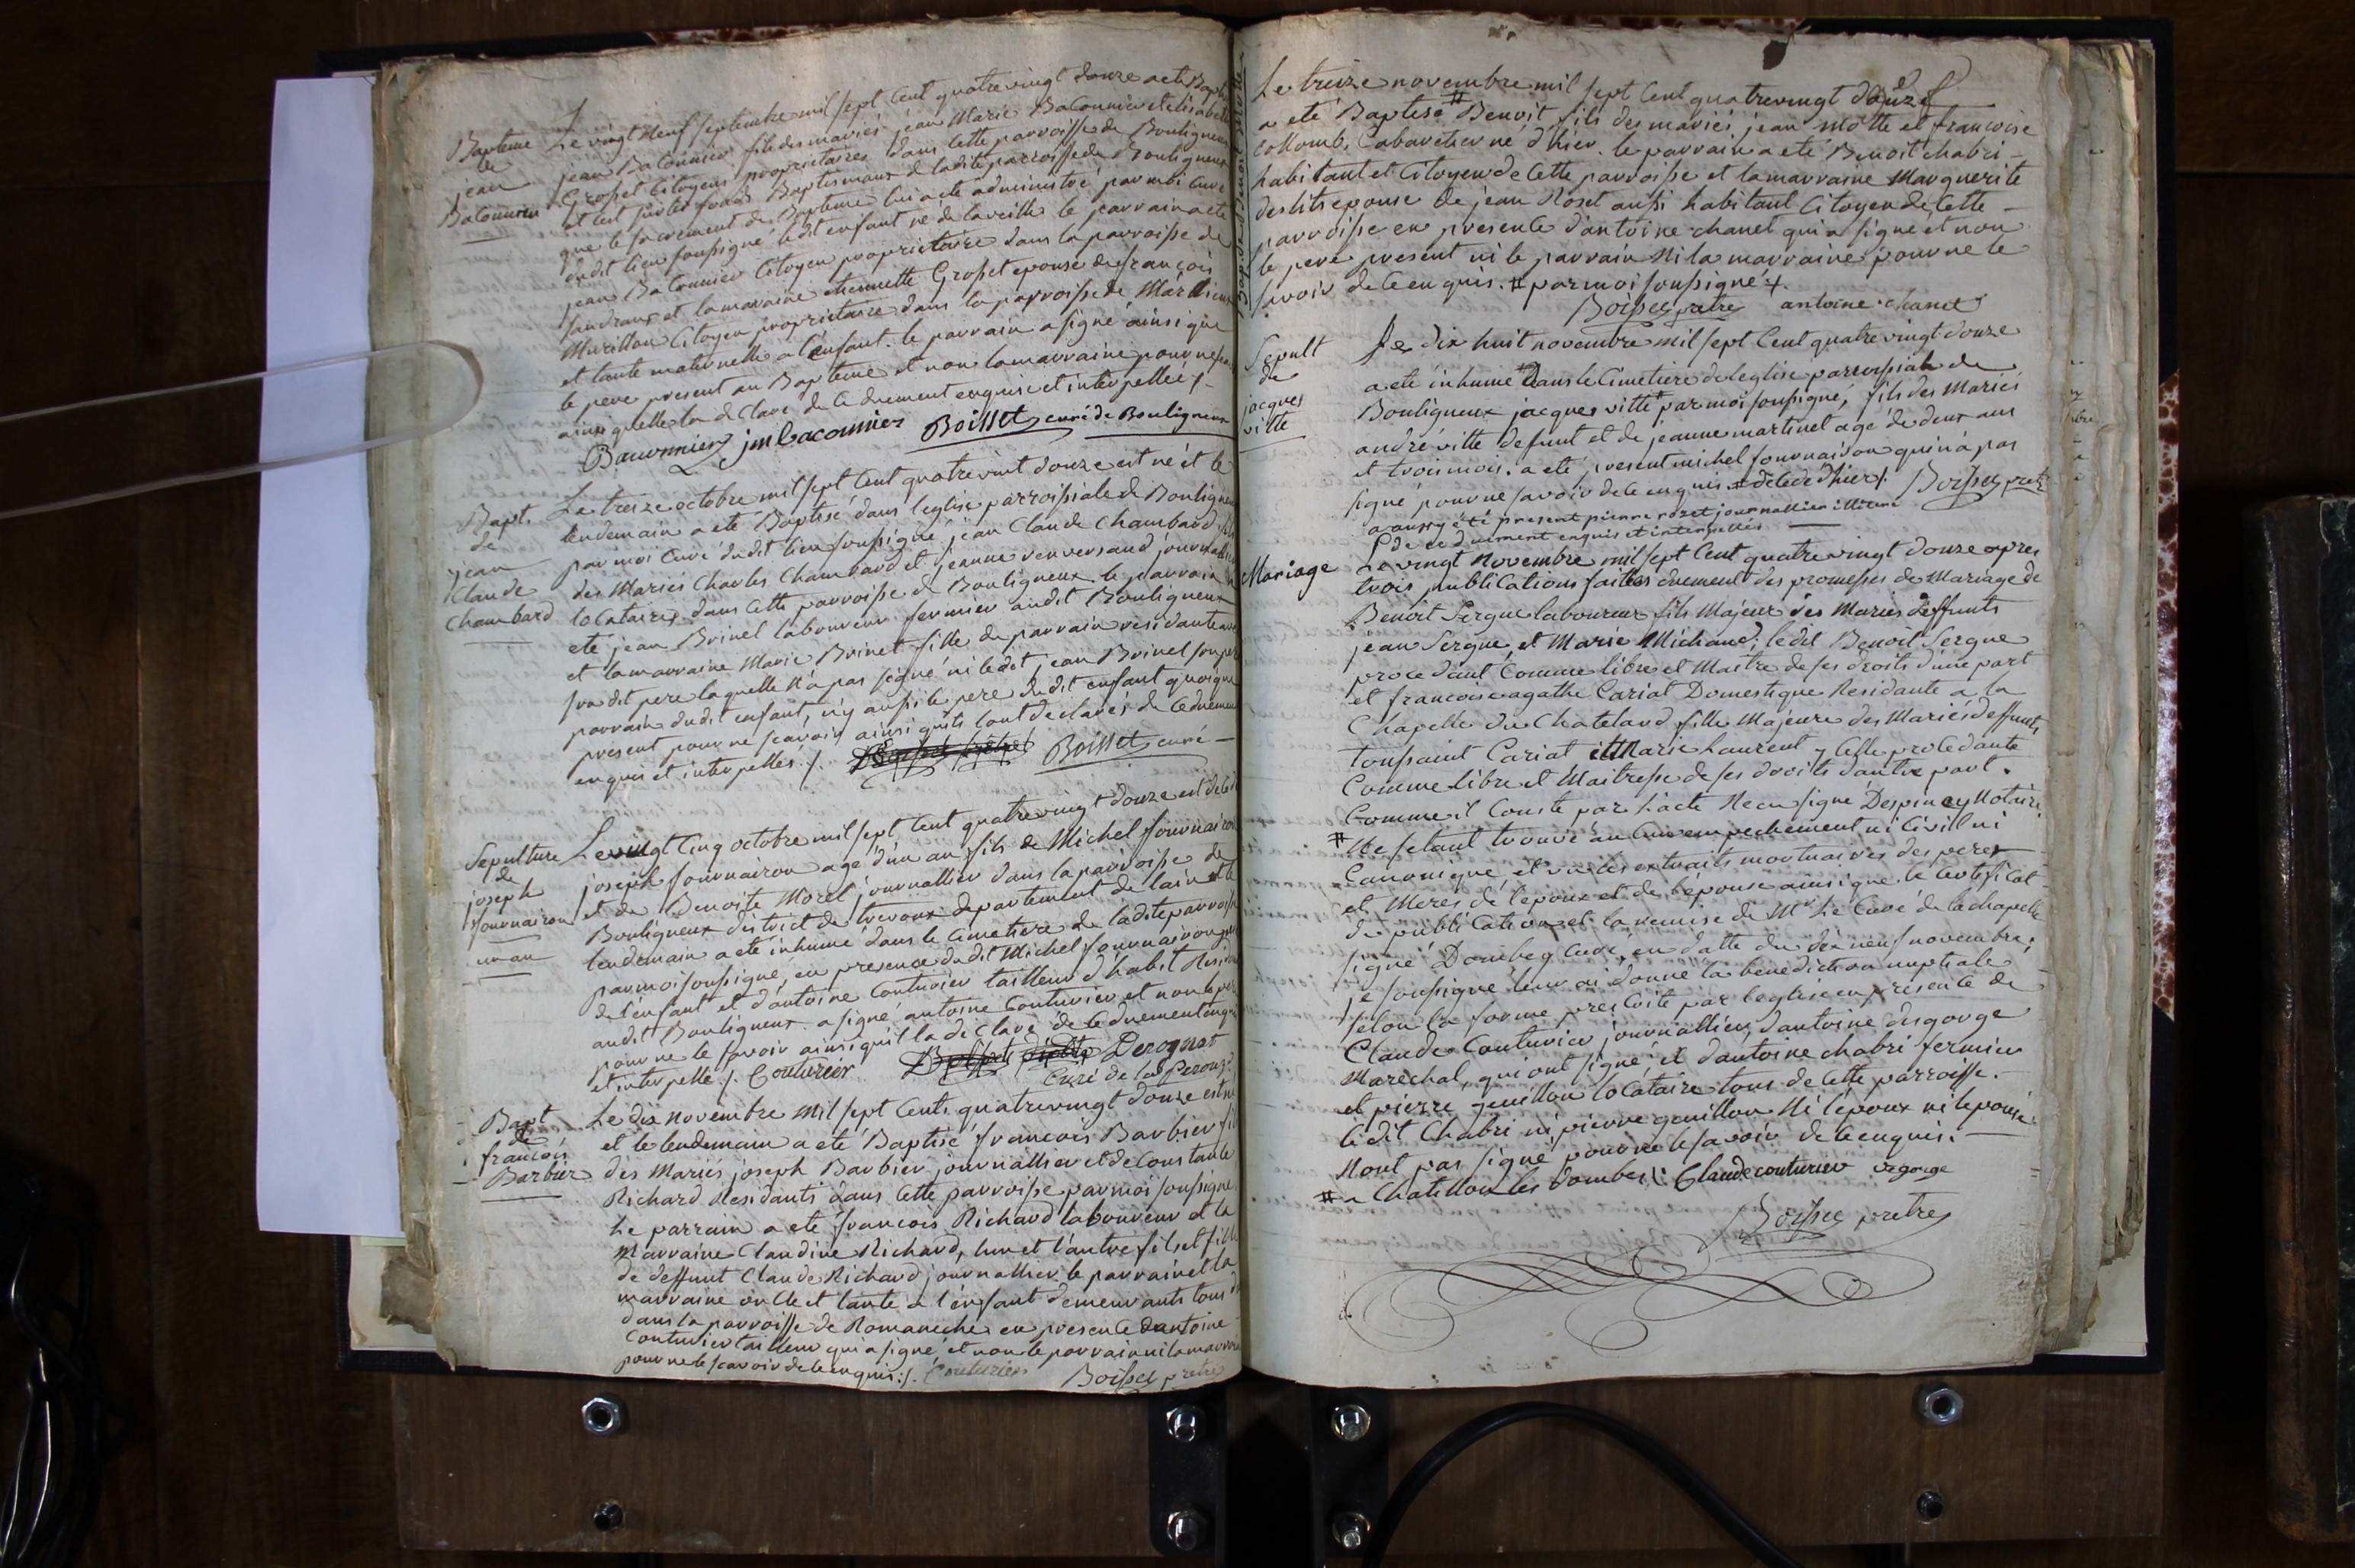 Bapteme
de
jean
Baconnier
Le vingt neuf septembre mil sept cent quatre vingt douze a ete Bapt
jean Baconnier fils des mariés jean Marie Baconnier et elisabeth
Groset citoyens proprietaires dans cette parroisse de Bouligneux
et cest sur les fonds Baptismaux de ladite parroisse de Bouligneux
que le sacrement de Bapteme lui a ete administré par moi curé
dudit lieu soussigné ledit enfant né de la veille le parrain a ete
jean Baconnier citoyen proprietaire dans la parroisse de
sandrans et la maraine etiennette Groset epouse de françois
Murillon citoyen proprietaire dans la parroisse de Marlieux
et tante maternelle a l'enfant. le parrain a signé ainsi que
le pere present au Bapteme et non la marraine pour ne sca
ainsi quelle la declaré de ce duement enquise et interpellée /-
Baconnier jm baconnier Boisset curé de Bouligneux
Bapt.
de
jean
Claude
Chambard
Le treize octobre mil sept cent quatre vint douze est né et le
lendemain a ete Baptisé dans l'eglise parroissiale de Bouligneux
par moi curé dudit lieu soussigné jean Claude Chambard fils
des mariés Charles Chambard et jeanne renversand journallier
locataires dans cette parroisse de Bouligneux le parrain a
ete jean Brinet laboureur fermier audit Bouligneux
et la marraine Marie Brinet fille du parrain residante avec
sondit pere laquelle n'a pas signé ni ledit jean Brinel son pere
parrain dudit enfant, n'y aussi le pere dudit enfant quoique
present pour ne scavoir ainsi qu'ils l'ont declarés de ce duement
enquis et interpellés /. Boisset curé -
Sepulture
de
joseph
fournairon
un an
Le vingt cinq octobre mil sept cent quatre vingt douze est decedé
joseph fournairon agé d'un an fils de Michel fournairon
et de Benoite Morel journallier dans la parroisse de
Bouligneux district de trevoux departement de lain et le
lendemain a ete inhumé dans le cimetiere de ladite parroisse
par moi soussigné, en presence dudit Michel fournairon pere
de l'enfant et d'antoine Couturier tailleur d'habit Resid
audit Bouligneux. a signé antoine Couturier et non le pere
pour ne le savoir ainsi qu'il la declaré de ce duement enquis
et interpellé /. Couturier Perognat
Curé de la Perouze
Bapt
de
francois
Barbier
Le dix novembre mil sept cents quatrevingt douze est né
et le lendemain a ete Baptisé francois Barbier fils
des Mariés joseph Barbier journallier et de Constante
Richard Residants dans cette parroisse par moi soussigné
Le parrain a ete francois Richard laboureur et la
Marraine Claudine Richard, lun et l'autre fils et fille
de deffunt Claude Richard journallier le parrain et la
marraine oncle et tante a l'enfant demeurants tous d
dans la parroisse de Romaneche en presence d'antoine
Couturier tailleur qui a signé, et non le parrain ni la marraine
pour ne le scavoir de ce enquis /. Couturier Boisset pretre
Le treize novembre mil sept cent quatrevingt douze
a eté Baptisé # Benoit fils des mariés jean Motte et francoise
Collomb, cabaretier né d'hier. le parrain a eté Benoit chabri -
habitant et citoyen de cette parroisse et la marraine Marguerite
deslits epouse de jean Roset aussi habitant citoyen de cette -
parroisse en presence d'antoine chanet qui a signé et non
le pere present ni le parrain ni la marraine pour ne le
savoir de ce enquis. # par moi soussigné /.
Boisset pretre antoine chanet
Sepult
de
jacques
vitte
Le dix huit novembre mil sept cent quatre vingt douze
a eté inhumé dans le cimetiere de leglise parroissiale de
Bouligneux jacques vitte # par moi soussigné, fils des mariés
andré vitte defunt et de jeanne martinet agé de deux ans
et trois mois. a eté present michel fournairon qui n'a pas
signé pour ne savoir de ce enquis # decedé d'hier /. Boisset pretre
a aussy été present pierre rozet journallier illitéré
de ce duement enquis et interpellés
Mariage
Le vingt Novembre mil sept cent quatre vingt douze apres
trois publications faittes duement des promesses de Mariage de
Benoit Sergue laboureur fils Majeur des Mariés deffunts
jean Sergue, et Marie Michaud; ledit Benoit Sergue
procedant comme libre et Maitre de ses droits d'une part
et francoise agathe Cariat Domestique Residante a la
Chapelle du Chatelard fille Majeure des Mariés deffunts
toussaint Cariat et Marie Laurent, celle procedante
Comme libre et Maitresse de ses droits d'autre part.
Comme il conste par l'acte Recu signé Despiney Notaire
# Ne setant trouvé aucun empechement ni Civill ni
Canonique, et vu les extraits mortuaires des peres
et Meres de l'epoux et de l'epouse ainsi que le certificat
de publication et la remise de Mr Le Curé de la chapelle
signé Dombey Curé, en datte du dix neuf novembre;
je soussigné leur ai donné la benediction nuptiale
selon la forme prescrite par l'eglise en presence de
Claude Couturier journallier, d'antoine degorge
Marechal, qui ont signé; et d'antoine chabri fermier
et pierre genillon locataire tous de cette parroisse.
ledit Chabri ni pierre genillon Ni l'epoux ni lepouse
Nont pas signé pour ne le savoir de ce enquis. -
# a Chatillon les Dombes /: Claude couturier degorge
Boisset pretre